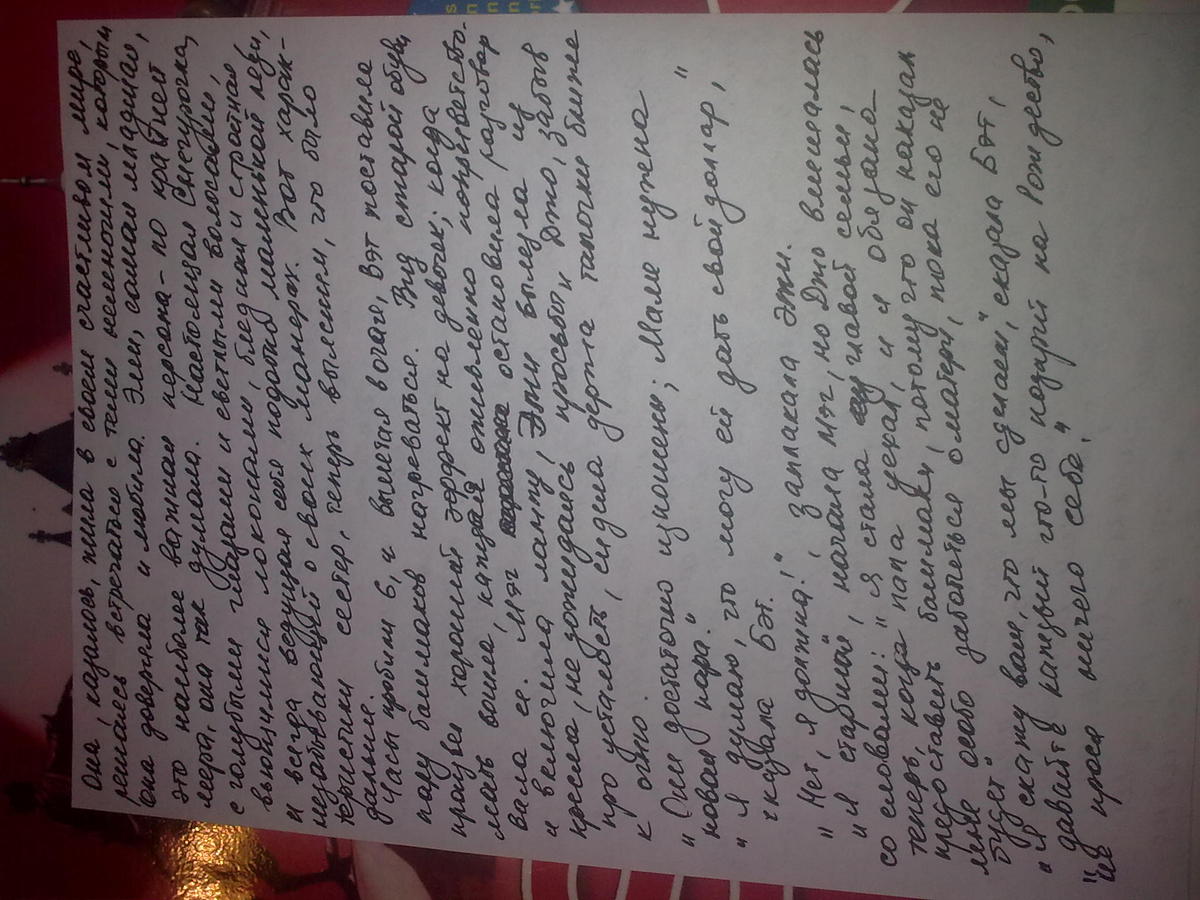 Она, казалось, жила в своем счастливом мире,
решаясь встречаться с теми немногими, которым
она доверяла и любила. Эми, самая младшая,
это наиболее важная персона - по крайней
мере, она так думала. Настоящая Снегурочка,
с голубыми глазами и светлыми волосами,
вьющимися локонами, бледная и стройная
и всегда ведущая себя подобно маленькой леди,
незабывающей о своих манерах. Вот харак-
теристики сестер, теперь выясним, что было
дальше.
Часы пробили 6, и вымечая очаге, Бэт поставила
пару башмаков нагреваться. Вид старой обуви
произвел хороший эффект на девочек; когда
мать вошла, каждая оживленно поприветство-
вала ее. Мэг остановила разговор
и включила лампу, Эми вылезла из
кресла, не дожидаясь просьбы, и Джо, забыв
про усталость, сидела держа тапочки ближе
к огню.
"Они достаточно изношены; Маме нужена
новая пара."
"Я думаю, что могу ей дать свой доллар,"
сказала Бэт.
"Нет, я должна!", заплакала Эми.
"Я старшая", начала Мэг, но Джо вмешалась
со словами: "я стала главой семьи,
теперь, когда папа уехал, и я обязана
предоставить башмаки, потому что он наказал
мне особо заботиться о матери, пока его не
будет"
"Я скажу вам, что мы сделаем," сказала Бэт,
"давайте каждый что-то подарит на Рождество,
не прося ничего себе."